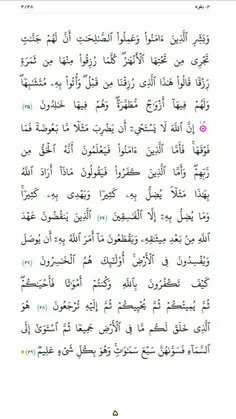 ۲- بقره ۲/۲۸
وَبَشِّرِ الَّذِينَ ءَامَنُوا وَعَمِلُوا الصَّالِحَتِ أَنَّ لَهُمْ جَنَّتٍ
تَجْرِى مِن تَحْتِهَا الْأَنْهَرُ كُلَّمَا رُزِقُوا مِنْهَا مِن ثَمَرَةٍ
رِّزْقًا قَالُوا هَذَا الَّذِى رُزِقْنَا مِن قَبْلُ وَأُتُوا بِهِ مُتَشَبِهًا
وَلَهُمْ فِيهَا أَزْوَجٌ مُّطَهَّرَةٌ وَهُمْ فِيهَا خَلِدُونَ (۲۵)
إِنَّ اللَّهَ لَا يَسْتَحْىِ أَن يَضْرِبَ مَثَلًا مَّا بَعُوضَةً فَمَا
فَوْقَهَا فَأَمَّا الَّذِينَ ءَامَنُوا فَيَعْلَمُونَ أَنَّهُ الْحَقُّ مِن
رَّبِّهِمْ وَأَمَّا الَّذِينَ كَفَرُوا فَيَقُولُونَ مَاذَا أَرَادَ اللَّهُ
بِهَذَا مَثَلًا يُضِلُّ بِهِ كَثِيرًا وَيَهْدِى بِهِ كَثِيرًا
وَمَا يُضِلُّ بِهِ إِلَّا الْفَسِقِينَ (۲۶) الَّذِينَ يَنقُضُونَ عَهْدَ
اللَّهِ مِن بَعْدِ مِيثَقِهِ وَيَقْطَعُونَ مَا أَمَرَ اللَّهُ بِهِ أَن يُوصَلَ
وَيُفْسِدُونَ فِى الْأَرْضِ أُولَئِكَ هُمُ الْخَسِرُونَ (۲۷)
كَيْفَ تَكْفُرُونَ بِاللَّهِ وَكُنتُمْ أَمْوَتًا فَأَحْيَكُمْ
ثُمَّ يُمِيتُكُمْ ثُمَّ يُحْيِيكُمْ ثُمَّ إِلَيْهِ تُرْجَعُونَ (۲۸) هُوَ
الَّذِى خَلَقَ لَكُم مَّا فِى الْأَرْضِ جَمِيعًا ثُمَّ اسْتَوَى إِلَى
السَّمَاءِ فَسَوَّىهُنَّ سَبْعَ سَمَوَتٍ وَهُوَ بِكُلِّ شَىْءٍ عَلِيمٌ (۲۹)
۵